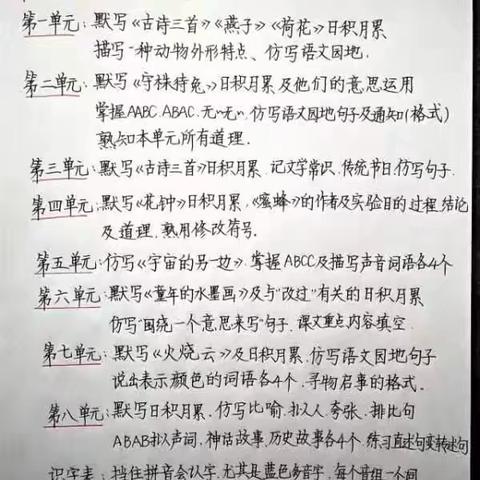 第一单元:默写《古诗三首》《燕子》《荷花》日积月累
描写一种动物外形特点、仿写语文园地.
第二单元:默写《守株待兔》日积月累及他们的意思运用
掌握AABC.ABAC.无~无~.仿写语文园地句子及通知(格式)
熟知本单元所有道理.
第三单元:默写《古诗三首》日积月累.记文学常识.传统节日.仿写句子.
第四单元:默写《花钟》日积月累,《蜜蜂》的作者及实验目的过程.结论
及道理.熟用修改符号.
第五单元:仿写《宇宙的另一边》.掌握ABCC及描写声音词语各4个
第六单元:默写《童年的水墨画》及与"改过"有关的日积月累
仿写"围绕一个意思来写"句子.课文重点内容填空.
第七单元:默写《火烧云》及日积月累.仿写语文园地句子
说出表示颜色的词语各4个.寻物启事的格式.
第八单元:默写日积月累.仿写比喻.拟人.夸张.排比句
ABAB拟声词,神话故事.历史故事各4个.练习直述句变转述句
识字表:挡住拼音会认字.尤其是蓝色多音字,每个音组一个词